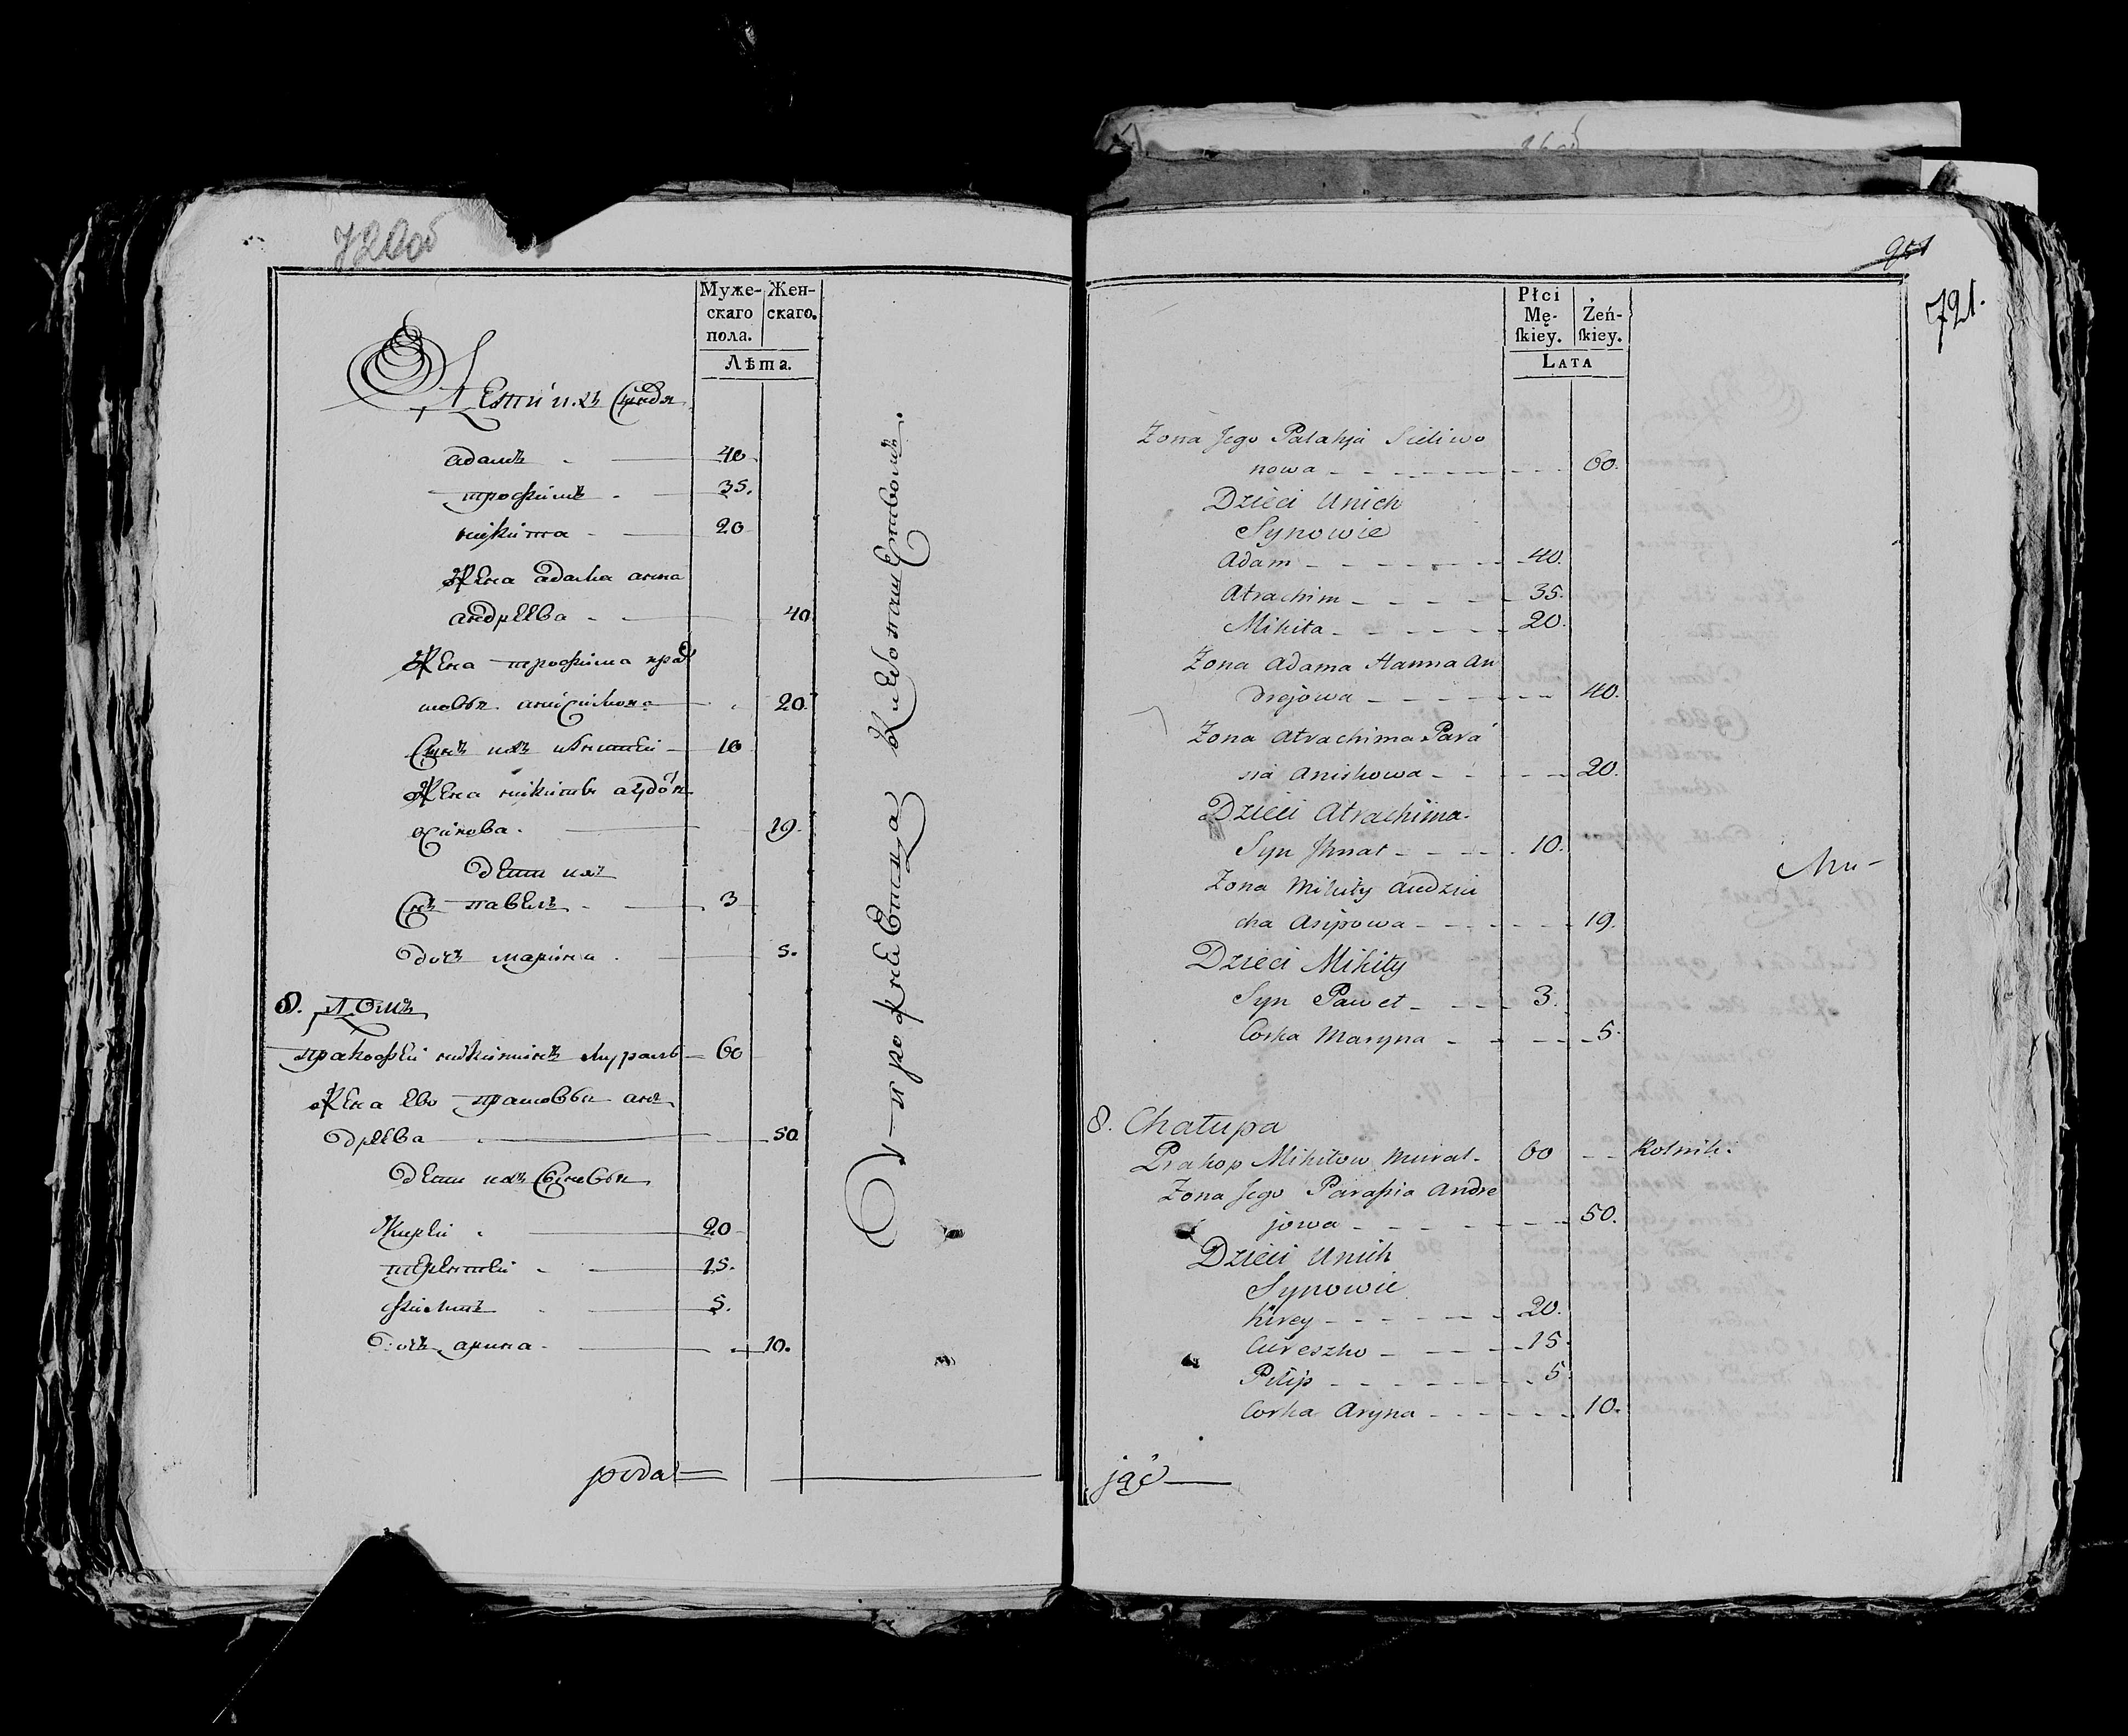 720об
Муже- Жен-
скаго скаго.
пола.
Лѣта.
Дети ихъ
адамъ 40
трофимъ 35.
никита 20
Жена адама анна
андреева 40
Жена трофима
20.
Сынъ ихъ 10
Жена никиты
осипова. 19.
дети ихъ
Снъ павелъ 3
дочъ марина 5.
8. Домъ
пракофей никитинъ мураль 60
Жена ево ан
дреева 50
дети ихъ Сыновья
Кирей 20
терентей 15.
филипъ 5.
дочъ арина 10.
poda
951
721.
Płci
Mę- Żeń-
ſkiey. ſkiey.
LATA
Zona Jego Palahja Sieliwo
nowa 60.
Dzieci Unich
Synowie
Adam 40.
Atrachim 35.
Mikita 20.
Zona Adama Hanna An
drejowa 40.
Zona Atrachima Para
sia Aniskowa 20.
Dzieci Atrachima.
Syn Jhnat 10.
Zona Mikity Audziu
cha Asipowa 19.
Dzieci Mikity
Syn Paweł 3.
Corka Maryna 5.
8. Chałupa
Prakop Mikitow Mural. 60 Rolnik.
Zona Jego Parasia Andre
jowa 50.
Dzieci Unich
Synowie
Kirey 20.
Cureszko 15.
Pilip 5.
Corka Aryna 10.
jąć